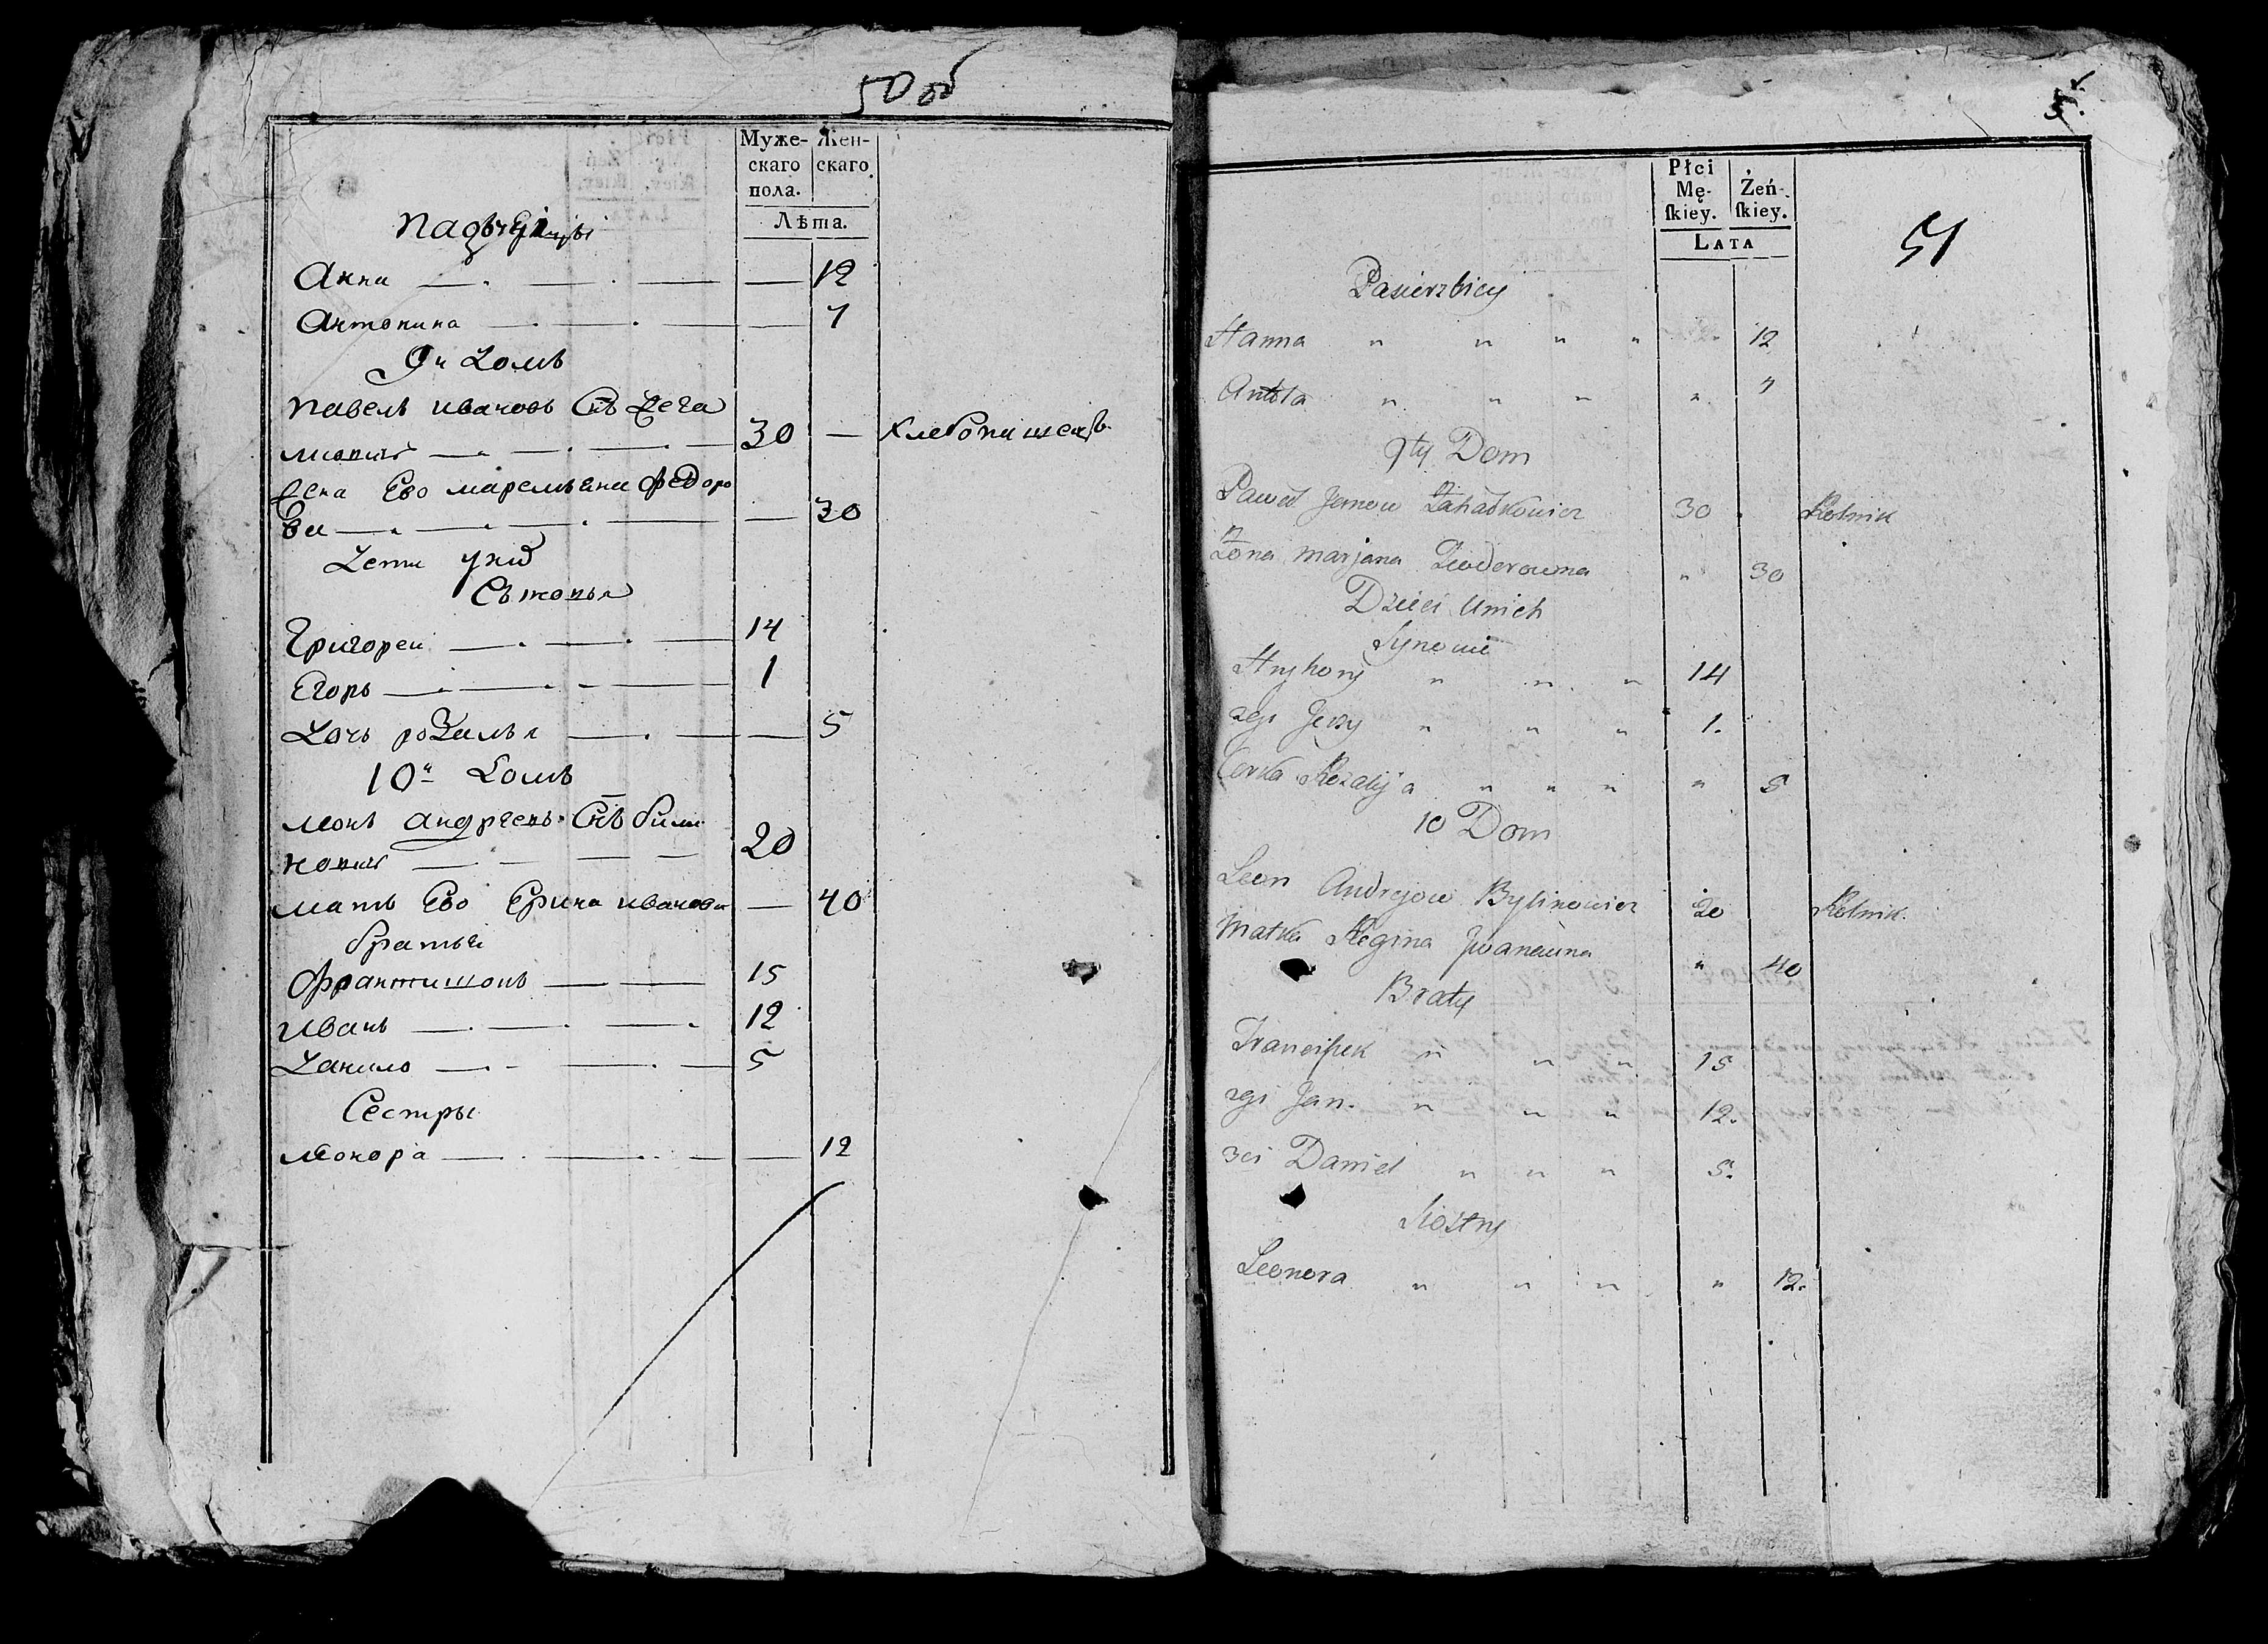 50 об
Муже-
скаго
пола.
Жен-
скаго.
Лѣта.
Падчерицы
Анна — — — — 12
Антонина — — — — 7
9й Домъ
Павелъ Ивановъ Снъ
30 — Хлебопашецъ
Его Марельяна Федоро
ва — — — — 30
Дети у них
Сыновья
Григореи — — — 14
Егоръ — — — 1
Дочь розалья — — — 5
10й Домъ
Леонъ Андреевъ Снъ Били
новичъ — — — — 20
Мать Ево Ерина Иванова — 40
братьи
Франтишокъ — — 15
Иванъ — — — 12
Данило — — — 5
Сестры
Леонора — — — — 12
51
Płci
Mę-
ſkiey.
Żeń-
ſkiey.
Lata
51
Pasierzbicy
Hanna " " " " " 12
Anta " " " " 7
9ty Dom
Paweł 30 Rolnik
Żona Marjana " 30
Dzieci Unich
Synowie
Hryhory " " " 14
2gi Jerzy " " " 1.
Corka Rozalija " " " " 5
10 Dom
Leon Andrejow Bylinowicz 20 Rolnik.
Matka Regina Jwanauna " 40
Braty
Franciſzek " " " 15
2gi Jan. " " " 12.
3ci Daniel " " " 5.
Siostry
Leonora " " " " 12.